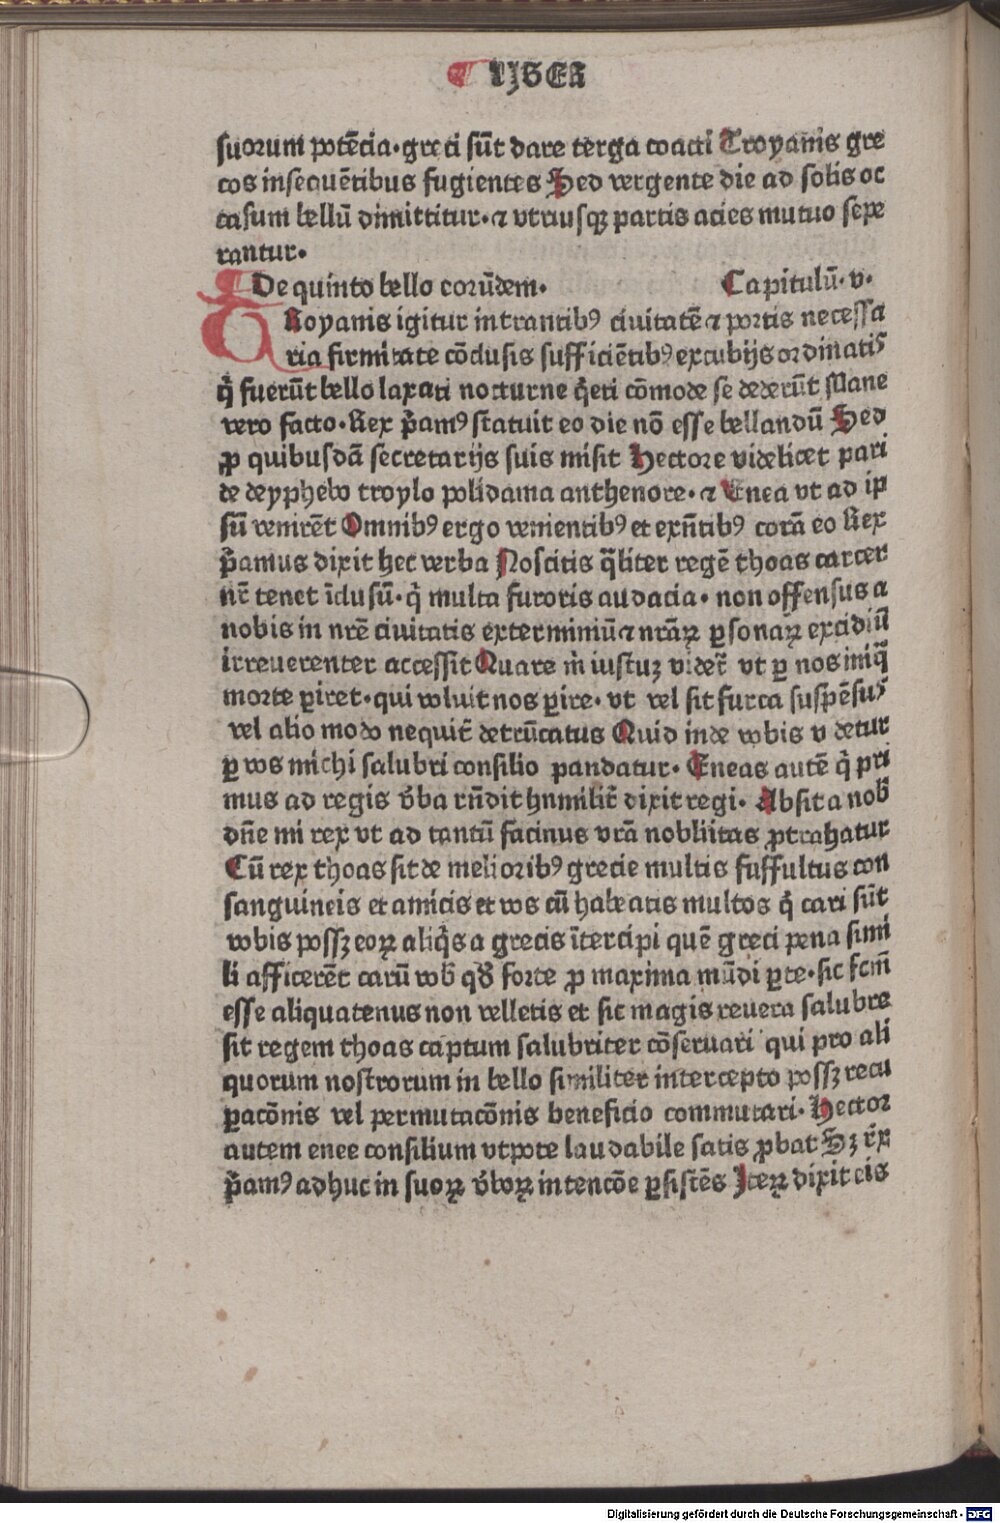 LIBER
suorum potẽcia·greci sũt dare terga coacti Troyanis gre
cos insequẽtibus fugientes Sed vergente die ad solis oc
casum bellũ dimittitur·⁊ vtriusqꝫ partis acies mutuo sepe
rantur·
De quinto bello eorũdem· Capitulũ·v·
TRoyanis igitur intrantibꝰ ciuitatẽ ⁊ portis necessa
ria firmitate cõclusis sufficiẽtibꝰ excubijs ordinatis
q̃ fuerũt bello laxati nocturne q̃eti cõmode se dederũt Mane
vero facto·Rex p̃amꝰ statuit eo die nõ esse bellandũ Sed
ꝓ quibusdã secretarijs suis misit Hectore videlicet pari
de deyphebo troylo polidama anthenore·⁊ Enea vt ad ip
sũ venirẽt Omnibꝰ ergo venientibꝰ et exñtibꝰ corã eo Rex
p̃amus dixit hec verba Noscitis q̃liter regẽ thoas carcer
nr̃ tenet ĩclusũ·q̃ multa furoris audacia·non offensus a
nobis in nr̃e ciuitatis exterminiũ ⁊ nr̃aꝝ ꝑsonaꝝ excidiũ
irreuerenter accessit Quare m̃ iustuꝫ videt̃ vt ꝑ nos iniq̃
morte ꝑiret·qui voluit nos ꝑire·vt vel sit furca suspẽsus
vel alio modo nequit̃ detrũcatus Quid inde vobis v detur
ꝑ vos michi salubri consilio pandatur·Eneas autẽ q̃ pri
mus ad regis v̾ba rñdit hnmilit̃ dixit regi·Absit a nob̾
dñe mi rex vt ad tantũ facinus vrã nobliitas ꝓtrahatur
Cũ rex thoas sit de melioribꝰ grecie multis fuffultus con
sanguineis et amicis et vos cũ habeatis multos q̃ cari sũt
vobis possꝫ eoꝝ aliq̃s a grecis ĩtercipi quẽ greci pena simi
li afficerẽt carũ vob̾ qđ forte ꝓ maxima mũdi ꝑte·sic fcm̃
esse aliquatenus non velletis et sic magis reuera salubre
sit regem thoas captum salubriter cõseruari qui pro ali
quorum nostrorum in bello similiter intercepto possꝫ recu
ꝑacõnis vel permutacõnis beneficio commutari·Hector
autem enee consilium vtpote laudabile satis ꝓbat Sꝫ r̃x
p̃amꝰ adhuc in suoꝝ v̾boꝝ intencõe ꝑsistẽs Iteꝝ dixit eis
Digitalisierung gefördert durch die Deutsche Forschungsgemeinschaft - DFG